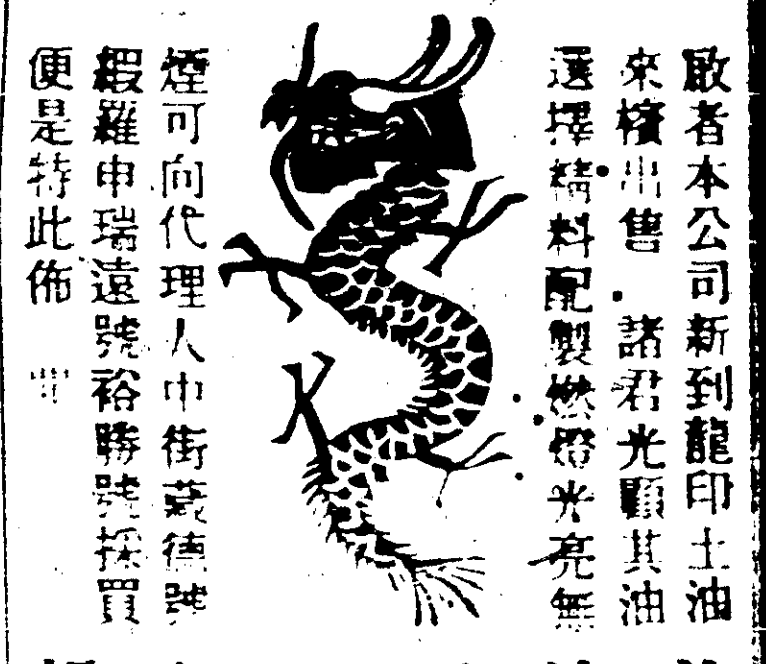 敬者本公司新到龍印土油
來檳出售 諸君光顧其油
選擇精料配製燃燈光亮無
煙可向代理人中街 德號
緞羅申瑞遠號裕勝號採買
便是特此佈